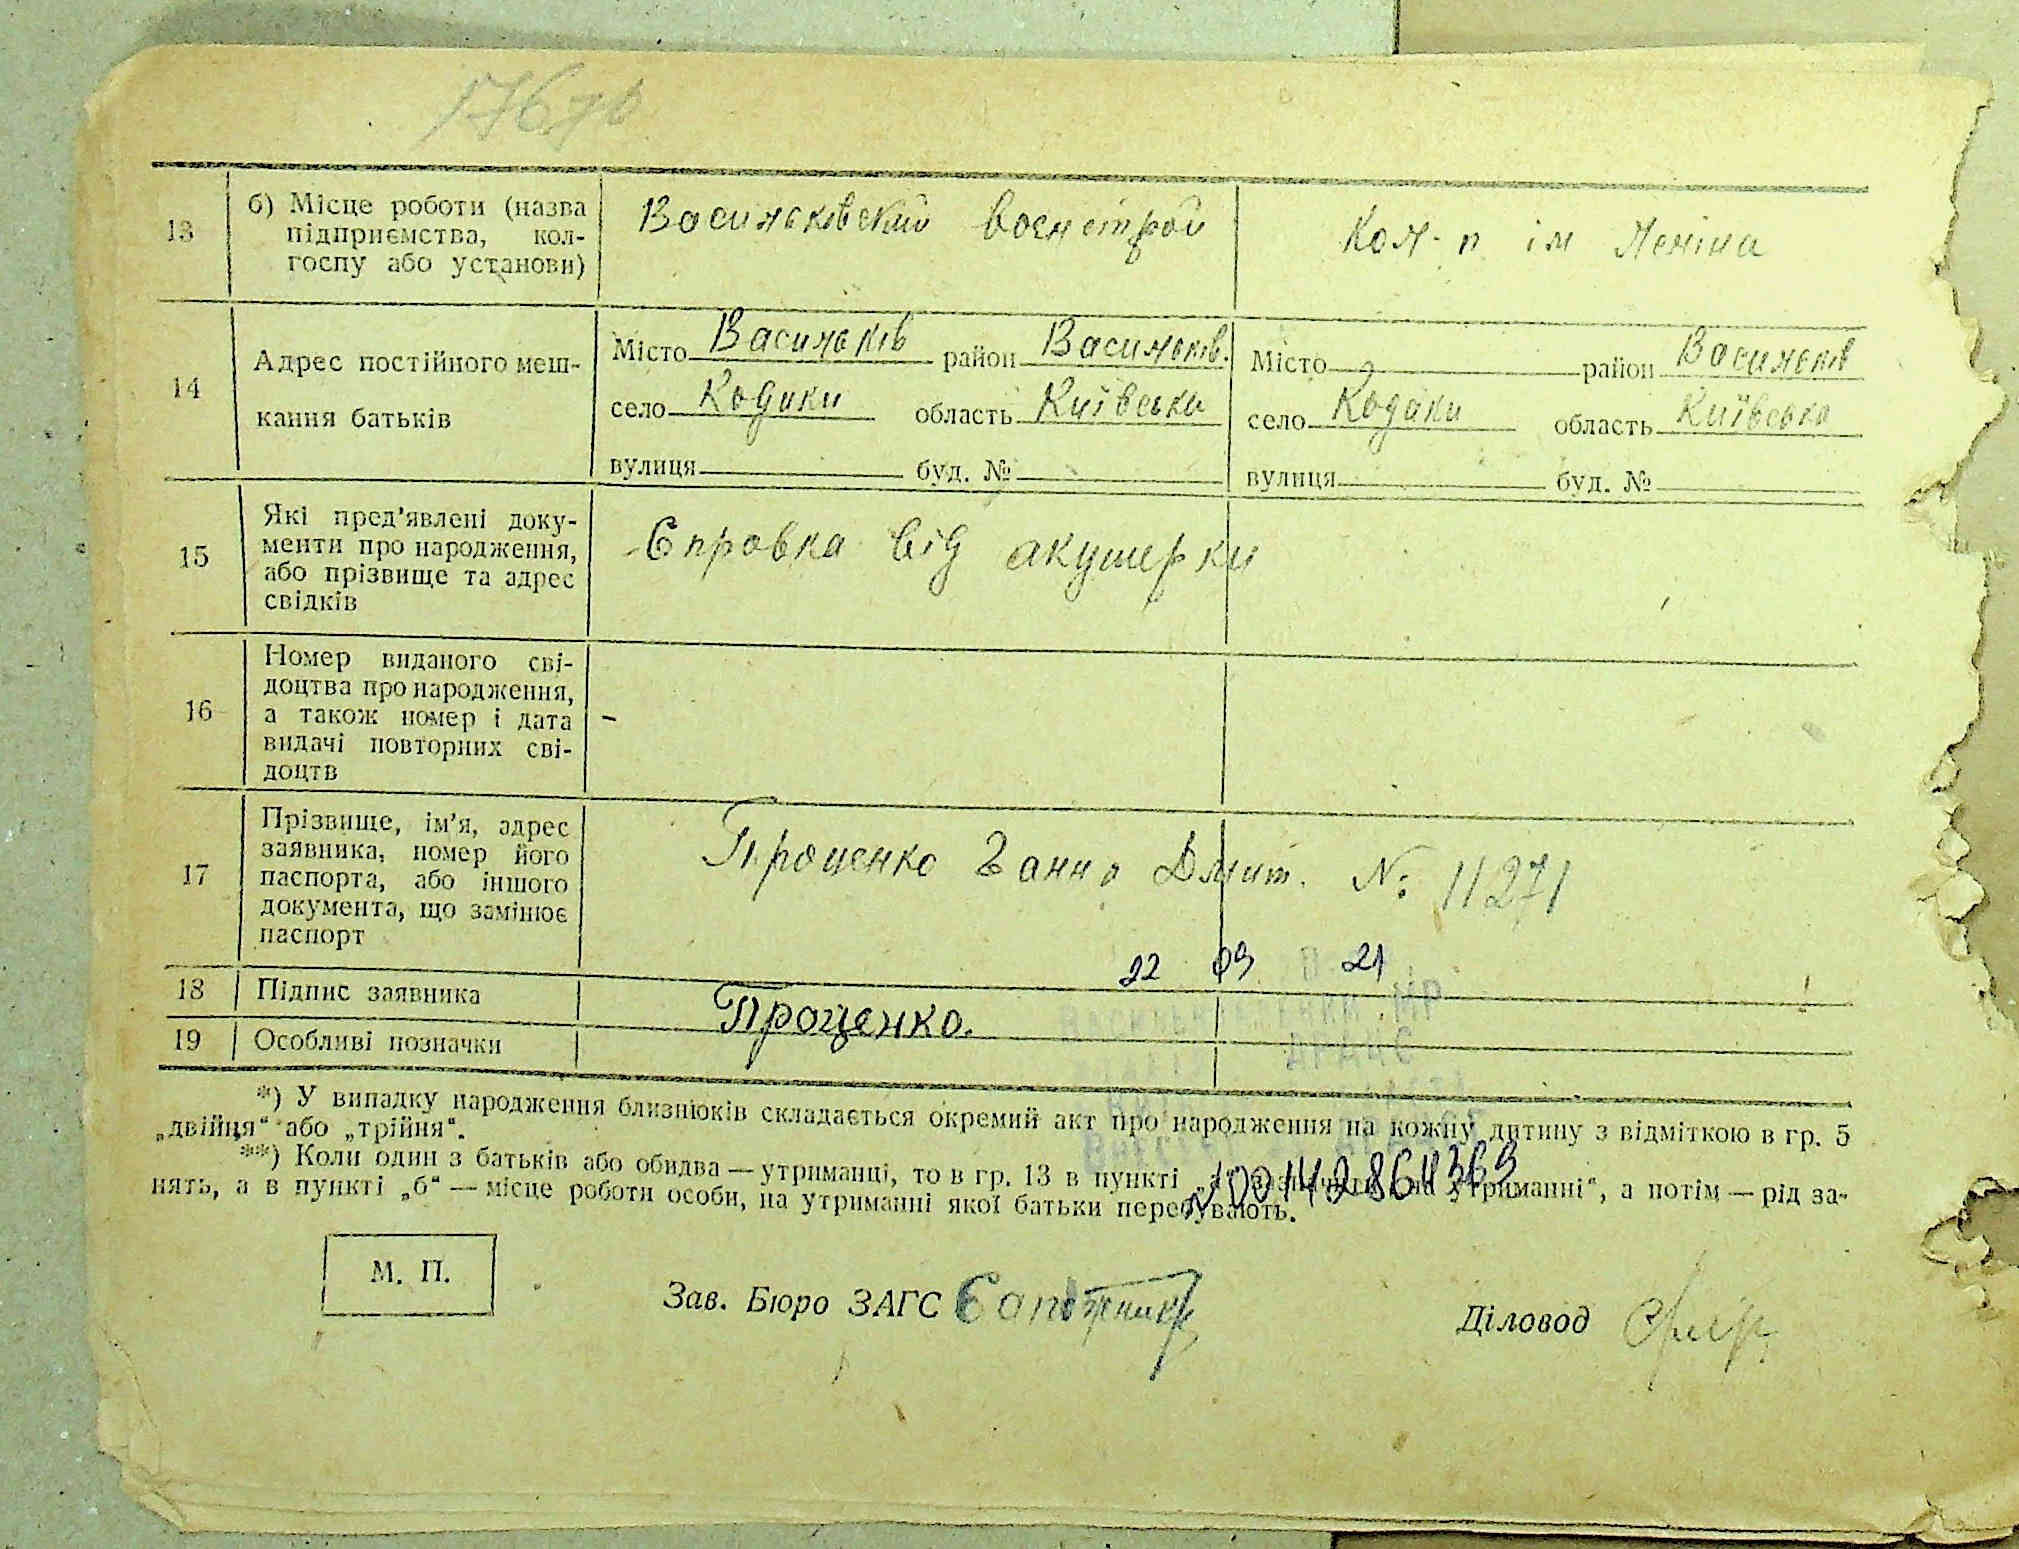 176 зв
13
б) Місце роботи (назва
підприємства, кол-
госпу або установи)
Васильківский военстрой
Кол-п ім Леніна
14
Адрес постійного меш-
кання батьків
Місто Васильків район Васильків.
село Кодаки область Київська
вулиця буд. №
Місто район Васильків
село Кодаки область Київська
вулиця буд. №
15
Які пред'явлені доку-
менти про народження,
або прізвище та адрес
свідків
Справка від акушерки
16
Номер виданого сві-
доцтва про народження,
а також номер і дата
видачі повторних сві-
доцтв
–
17
Прізвище, ім'я, адрес
заявника, номер його
паспорта, або іншого
документа, що замінює
паспорт
Проценко Ганна Дмит. № 11271
22 09 21
18
Підпис заявника
Проценко.
19
Особливі позначки
*) У випадку народження близнюків складається окремий акт про народження на кожну дитину з відміткою в гр. 5
„двійця“ або „трійня“.
**) Коли один з батьків або обидва — утриманці, то в гр. 13 в пункті утриманні“, а потім — рід за-
нять, а в пункті „б“ — місце роботи особи, на утриманні якої батьки перебувають.
№00142864369
М. П.
Зав. Бюро ЗАГС
Діловод